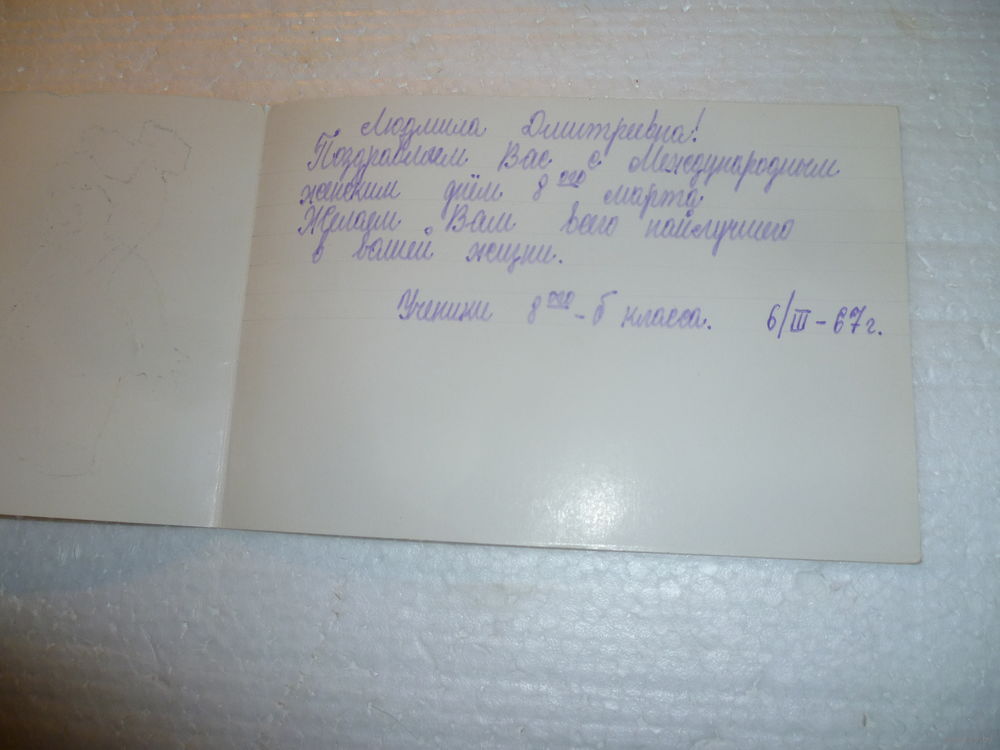 Людмила Дмитриевна!
Поздравляем Вас с Международным
женским днём 8ого марта
Желаем Вам всего найлучшего
в вашей жизни.
Ученики 8ого-б класса. 6/III-67г.